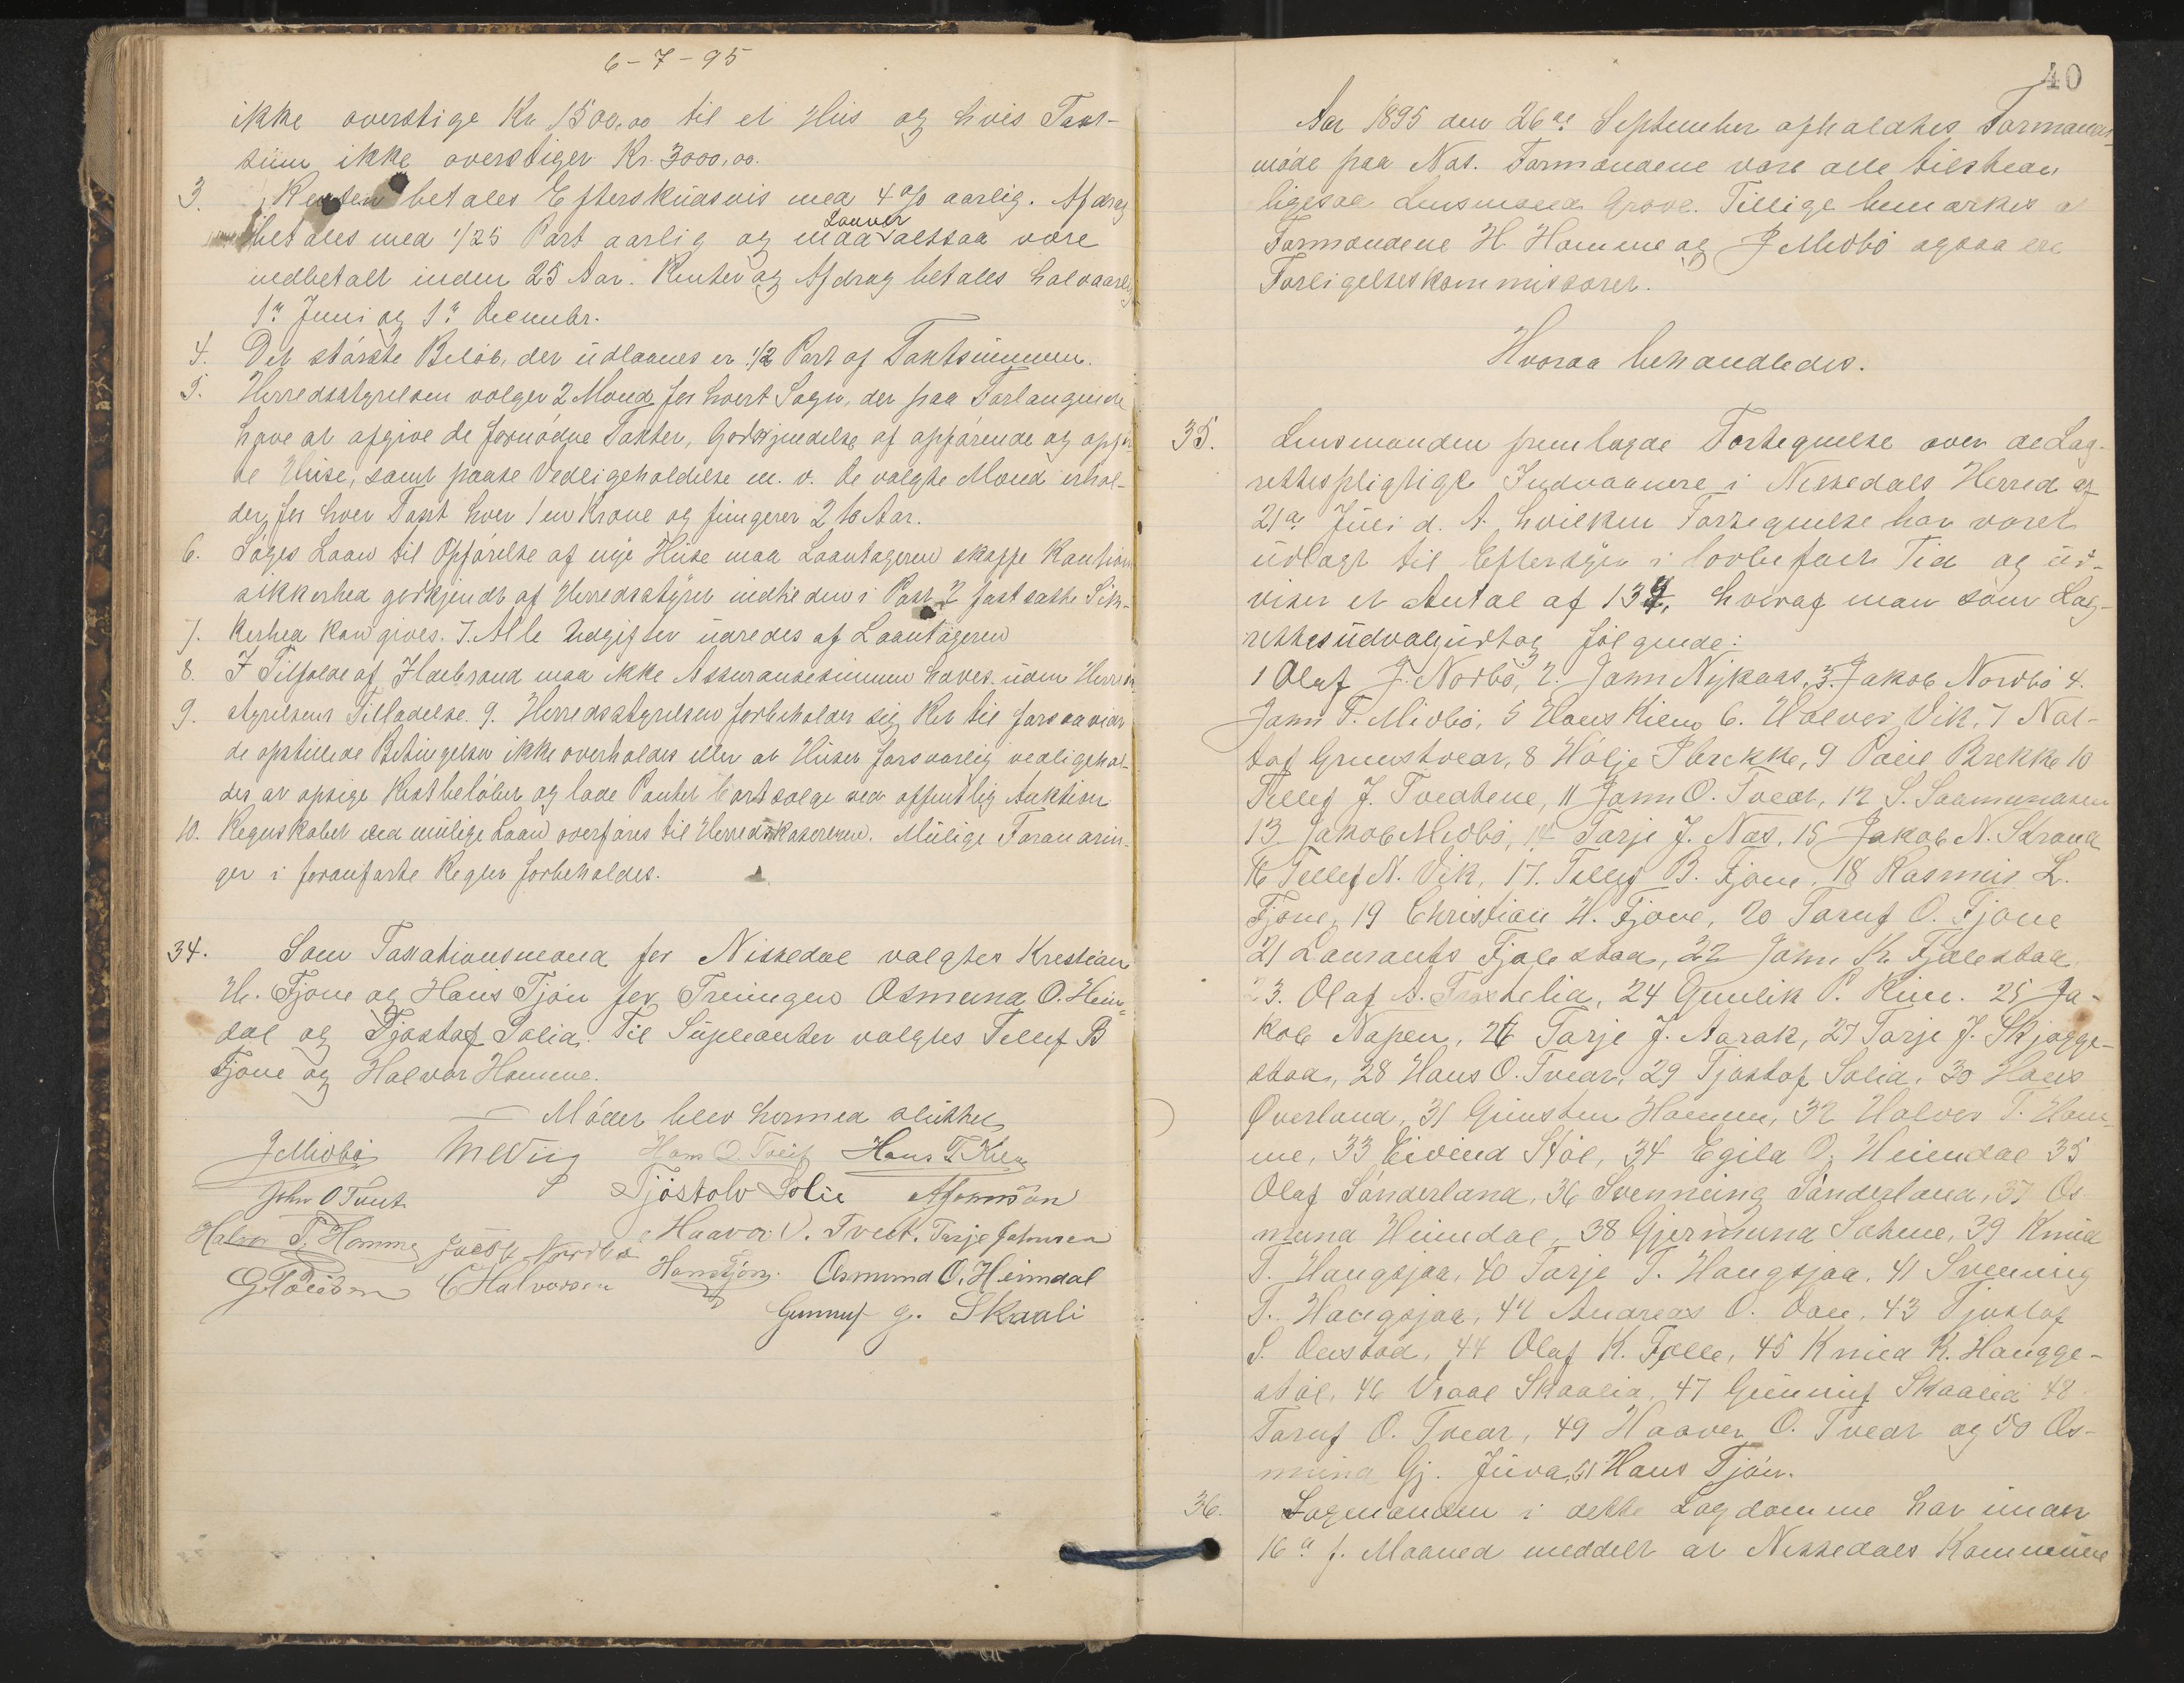 6-7-95
ikke overstige Kr 1500,00 til et Hus og hvis Taxt-
sum ikke overstiger Kr. 3000,00.
3. Renten betales Efterskudsvis med 4% aarlig. Afdrag
betales med 1/25 Part aarlig og maa Laanet altsaa være
nedbetalt inden 25 Aar. Renter og Afdrag betales halvaarlig
1ste Juni og 1ste Decembr.
4. Det største Beløb, der udlaanes er 1/2 Part af Taxtsummen.
5. Herredsstyrelsen vælger 2 Mænd for hvert Sogn, der paa Forlangende
have at afgive de fornødne Taxter, Godkjendelse af opførende og opfør-
te Huse, samt paase Vedligeholdelse m. v. De valgte Mænd erhol-
der for hver Taxt hver 1 en Krone og fungerer 2 to Aar.
6. Søges Laan til Opførelse af nye Huse maa Laantageren skaffe Kautions
sikkerhed godkjendt af Herredsstyret indtil den i Post 2 fastsatte Sik-
7. kerhed kan gives. 7. Alle Udgifter udredes af Laantageren
8. I Tilfælde af Ildebrand maa ikke Assurancesummen hæves uden Herreds
9. styrelsens Tilladelse. 9. Herredsstyrelsen forbeholder sig Ret til forsaavidt
de opstillede Betingelser ikke overholdes eller at Huset forsvarlig vedligehol-
des at opsige Restbeløbet og lade Pantet bortsælge ved offentlig Auktion
10. Regnskabet ved mulige Laan overføres til Herredskassereren. Mulige Forandrin-
ger i foranførte Regler forbeholdes.
34. Som Taxationsmænd for Nissedal valgtes Krestian
H. Fjone og Hans Tjøn for Treungen Osmund O. Heim-
dal og Tjøstof Solid. Til Supleanter valgtes Tellef B
Fjone og Halvor Homme.
Mødet blev hermed sluttet
J Midbø Hans O Tveit Hans T. Kien
John O Tveit Tjøstolv Solie A Jonnsøn
Halvor T. Homme Jacob Nordbø Haavor O. Tveit. Tarje Johnsen
C Halvorsen Hans Tjøn. Osmund O. Heimdal
Gunnuf G. Skaali
40
Aar 1895 den 26de September afholdtes Formands-
møde paa Næs. Formændene vare alle tilstede
ligesaa Lensmand Grave. Tillige bemærkes at
Formændene H. Homme og J Midbø ogsaa ere
Forligelseskommissærer.
Hvorpaa behandledes.
35. Lensmanden fremlagde Fortegnelse over de Lag-
rettespligtige Indvaanere i Nissedals Herred af
21de Juli d. A. hvilken Fortegnelse har været
udlagt til Eftersyn i lovbefalt Tid og ud-
viser et Antal af 134, hvoraf man som Lag-
rettesudvalg udtog følgende:
1 Olaf J. Nordbø, 2. Jann Nykaas, 3. Jakob Nordbø 4.
Jann T. Midbø, 5 Hans Kien, 6. Halvor Vik, 7 Nål-
tof Grunstveat, 8 Hølje Brekke, 9 Påul Brekke 10
Tellef J. Tvedtene, 11 Jann O. Tveat, 12 S. Saamundsen
13 Jakob Midbø, 14 Tarje J. Næs, 15 Jakob N. Strand
16 Tellef N. Vik, 17. Tellef B. Fjone, 18 Rasmus L.
Fjone, 19 Christian H. Fjone, 20 Taruf O. Fjone
21 Laurants Fjalestad, 22 Jann Kr Fjalestad,
23. Olaf A. Trostelid, 24 Gunlik P. Kien. 25 Ja-
kob Napen, 26 Tarje J. Aarak, 27 Tarje J. Skjegge-
stad, 28 Hans O. Tveat, 29 Tjøstof Solid, 30 Hans
Overland, 31 Gunsten Homme, 32 Halvor T. Hom-
me, 33 Eivind Støl, 34 Egild O. Heimdal 35
Olaf Sønderland, 36 Svennung Sønderland, 37 Os-
mund Heimdal, 38 Gjermund Satene, 39 Knud
T. Haugsjaa, 40 Tarje T. Haugsjaa, 41 Svennung
T. Haugsjaa, 42 Andreas O. Dale, 43 Tjøstof
S. Ousdad, 44 Olaf K. Fjelle, 45 Knud K. Haugge-
støl, 46 Vraal Skaalid, 47 Gunnuf Skaalid 48
Taruf O. Tveat, 49 Haavor O. Tveat og 50 Os-
mund Gj. Juva, 51 Hans Tjøn.
36. Lagmanden i dette Lagdømme har under
16de f. Maaned meddelt at Nissedals Kommune